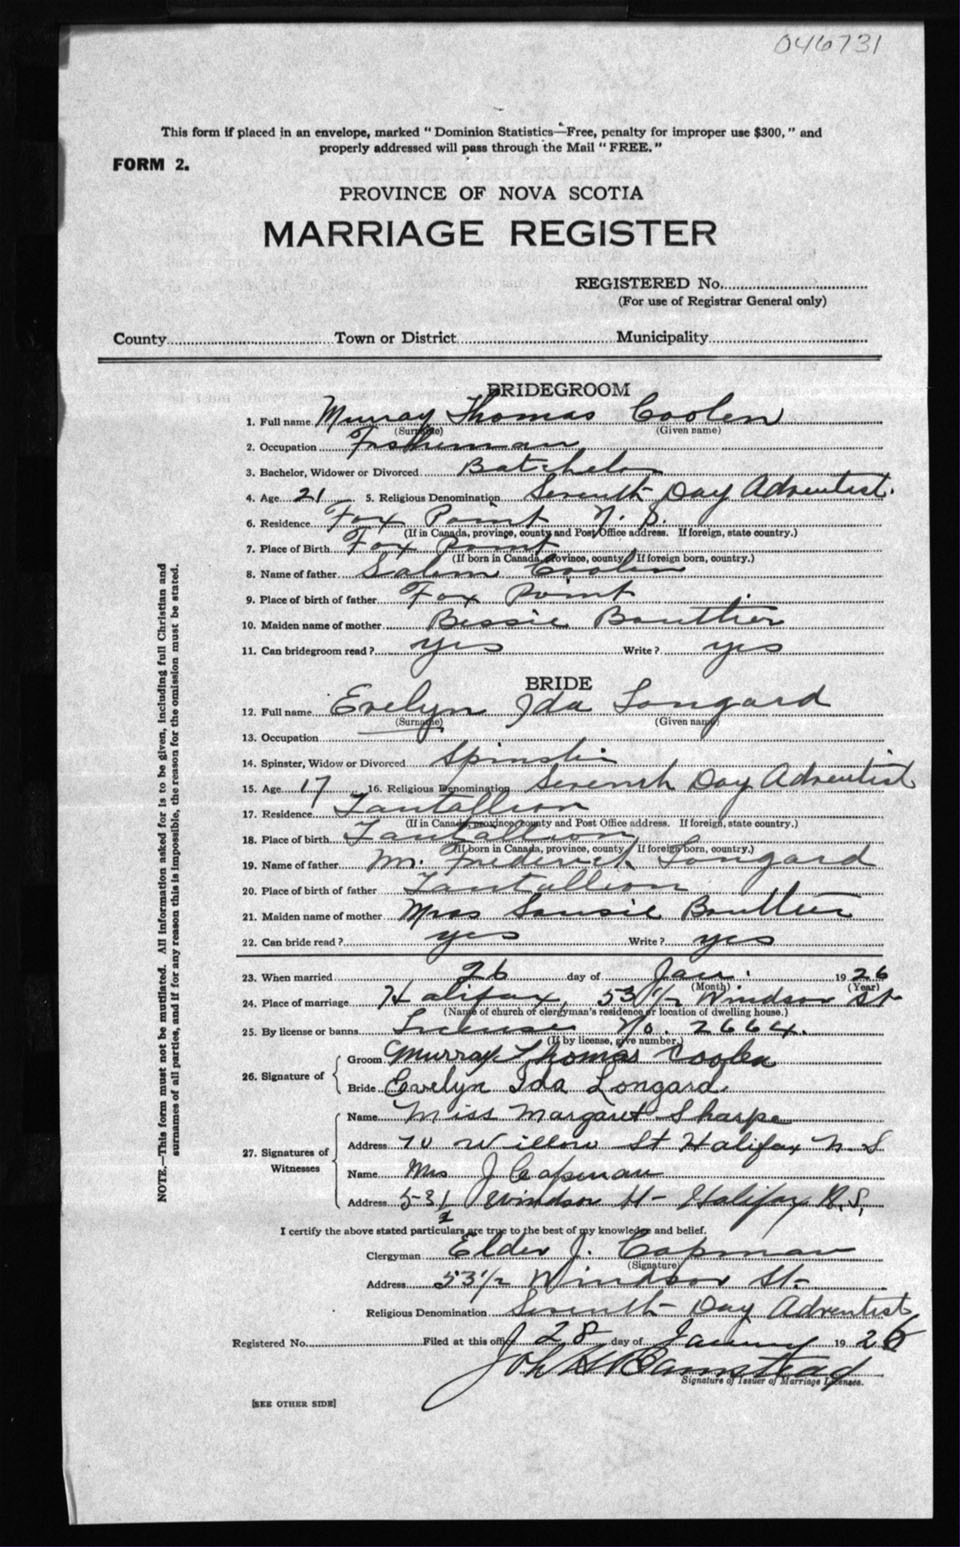 046731
This form if placed in an envelope, marked "Dominion Statistics—Free, penalty for improper use $300," and
properly addressed will pass through the Mail "FREE."
FORM 2.
PROVINCE OF NOVA SCOTIA
MARRIAGE REGISTER
REGISTERED No.
(For use of Registrar General only)
County Town or District Municipality
BRIDEGROOM
1. Full name Murray Thomas Coolen
(Surname) (Given name)
2. Occupation Fisherman
3. Bachelor, Widower or Divorced Batchelor
4. Age 21 5. Religious Denomination Seventh Day Adventist.
6. Residence Fox Point N. S.
(If in Canada, province, county and Post Office address. If foreign, state country.)
7. Place of Birth Fox Point
(If born in Canada, province, county. If foreign born, country.)
8. Name of father Salem Coolen
9. Place of birth of father Fox Point
10. Maiden name of mother Bessie Bouttier
11. Can bridegroom read? yes Write? yes
BRIDE
12. Full name Evelyn Ida Longard
(Surname) (Given name)
13. Occupation
14. Spinster, Widow or Divorced Spinster
15. Age 17 16. Religious Denomination Seventh Day Adventist
17. Residence Tantallion
(If in Canada, province, county and Post Office address. If foreign, state country.)
18. Place of birth Tantallion
(If born in Canada, province, county. If foreign born, country.)
19. Name of father Mr. Frederick Longard
20. Place of birth of father Tantallion
21. Maiden name of mother Mrs Bouttier
22. Can bride read? yes Write? yes
23. When married 26 day of Jan. 1926
(Month) (Year)
24. Place of marriage Halifax, 53 1/2 Windsor St
(Name of church or clergyman's residence or location of dwelling house.)
25. By license or banns License No. 2664.
(If by license, give number.)
26. Signature of
Groom Murray Thomas Coolen
Bride Evelyn Ida Longard.
27. Signatures of Witnesses
Name Miss Margaret Sharpe
Address 70 Willow St Halifax N. S
Name Mrs J Capman
Address 53 1/2 Windsor St- Halifax N. S.
I certify the above stated particulars are true to the best of my knowledge and belief.
Clergyman Elder J. Capman
(Signature)
Address 53 1/2 Windsor St-
Religious Denomination Seventh-Day Adventist
Registered No. Filed at this office 28 day of January 1926
Signature of Issuer of Marriage Licenses.
[SEE OTHER SIDE]
NOTE.—This form must not be mutilated. All information asked for is to be given, including full Christian and
surnames of all parties, and if for any reason this is impossible, the reason for the omission must be stated.